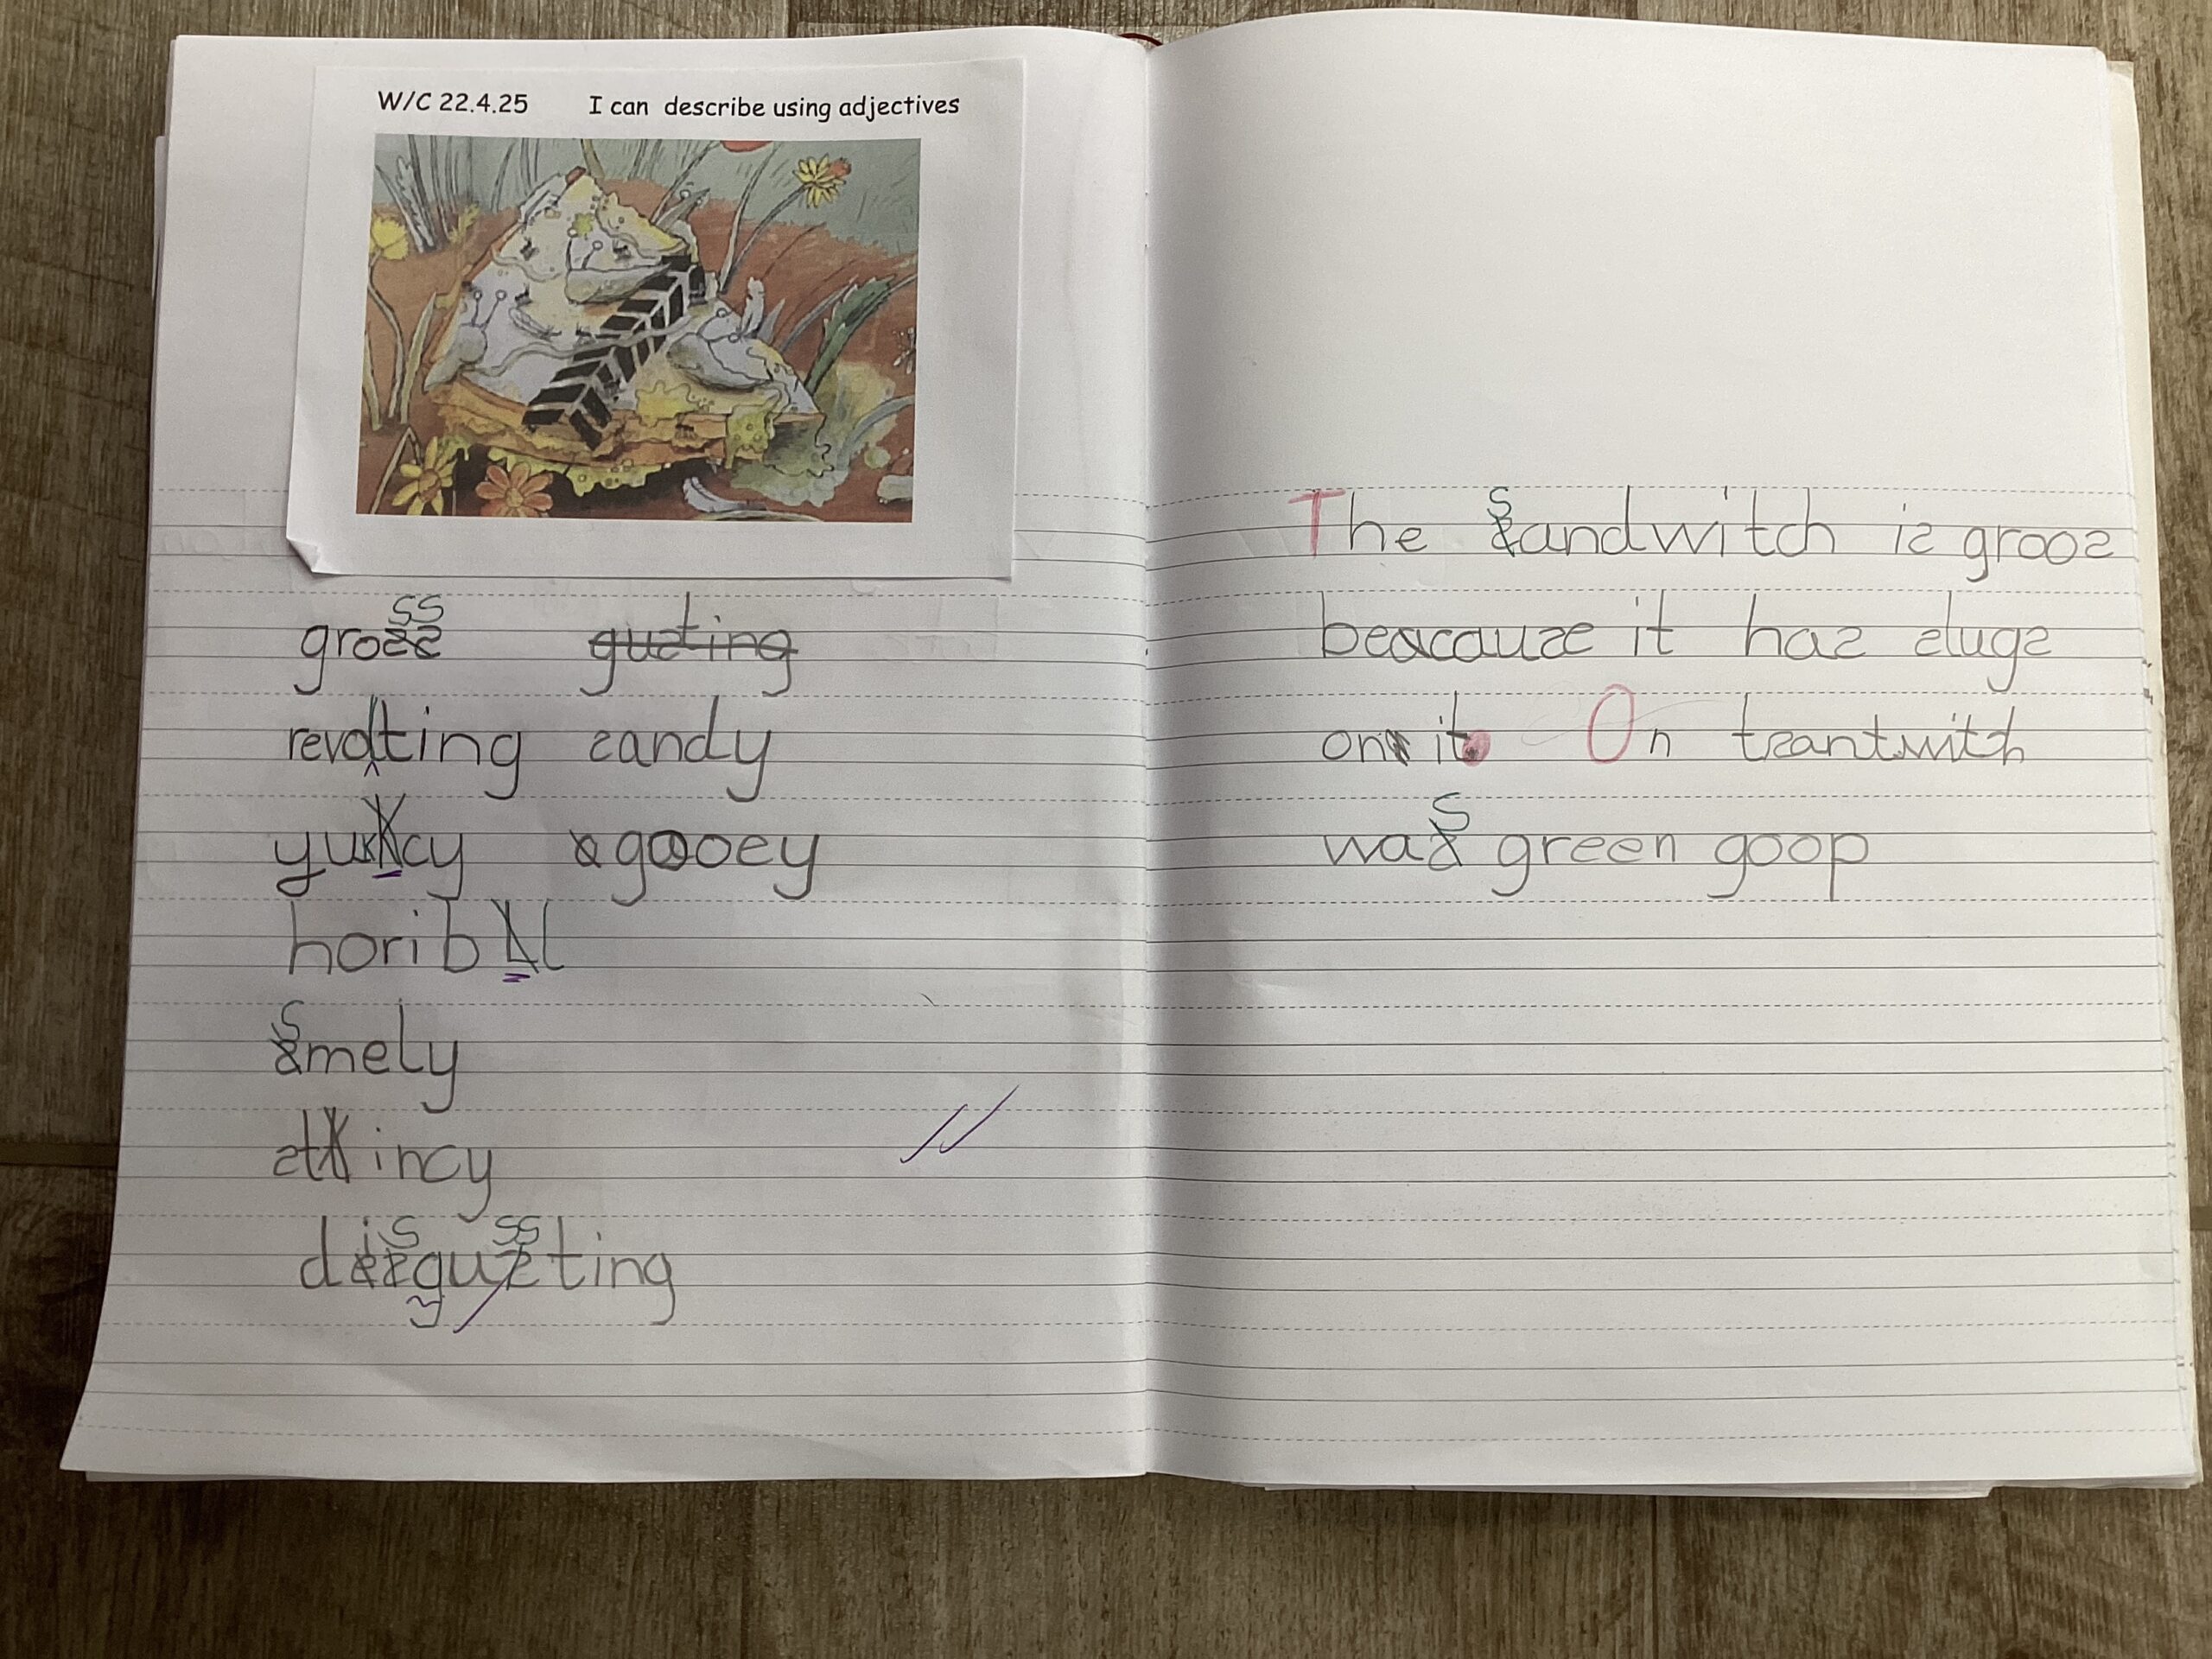 W/C 22.4.25 I can describe using adjectives
gross gusting
revolting sandy
yukcy gooey
horibl
smely
stincy
disgussting
The sandwitch is groos
beacause it has slugs
on it. On tsantwitch
was green goop